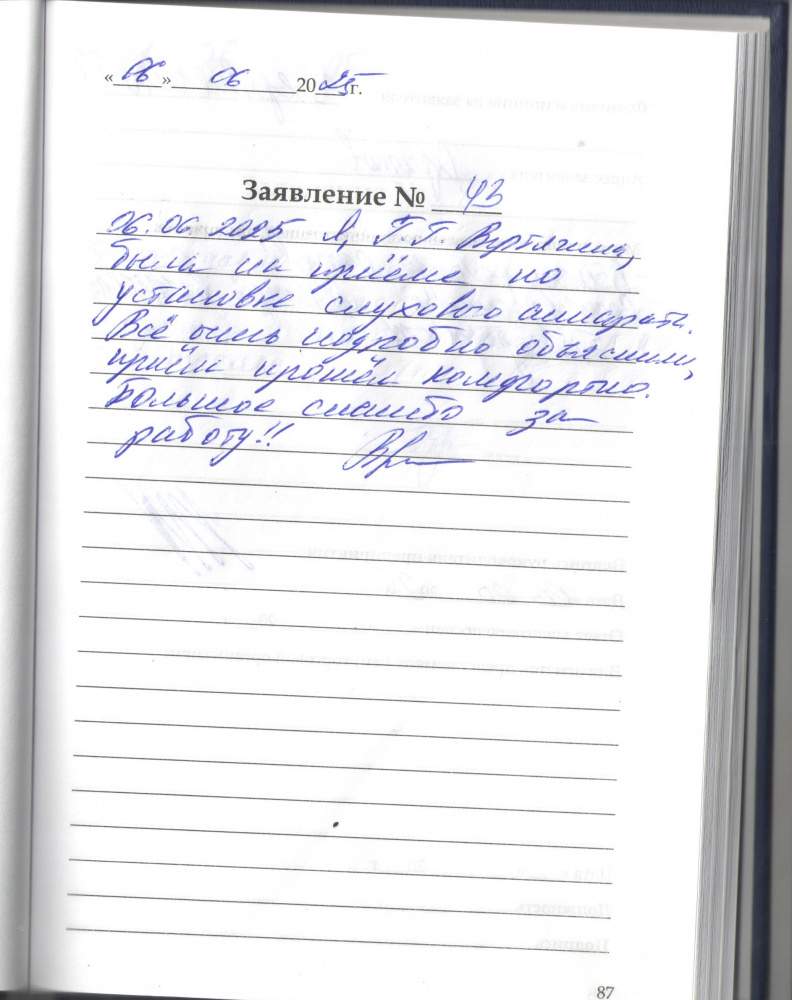 «06» 06 2025 г.
Заявление № 43
06.06.2025 Я, Г.П. Вертячина,
была на приёме по
установке слухового аппарата.
Всё очень подробно объяснили,
приём прошёл комфортно.
Большое спасибо за
работу!!
87